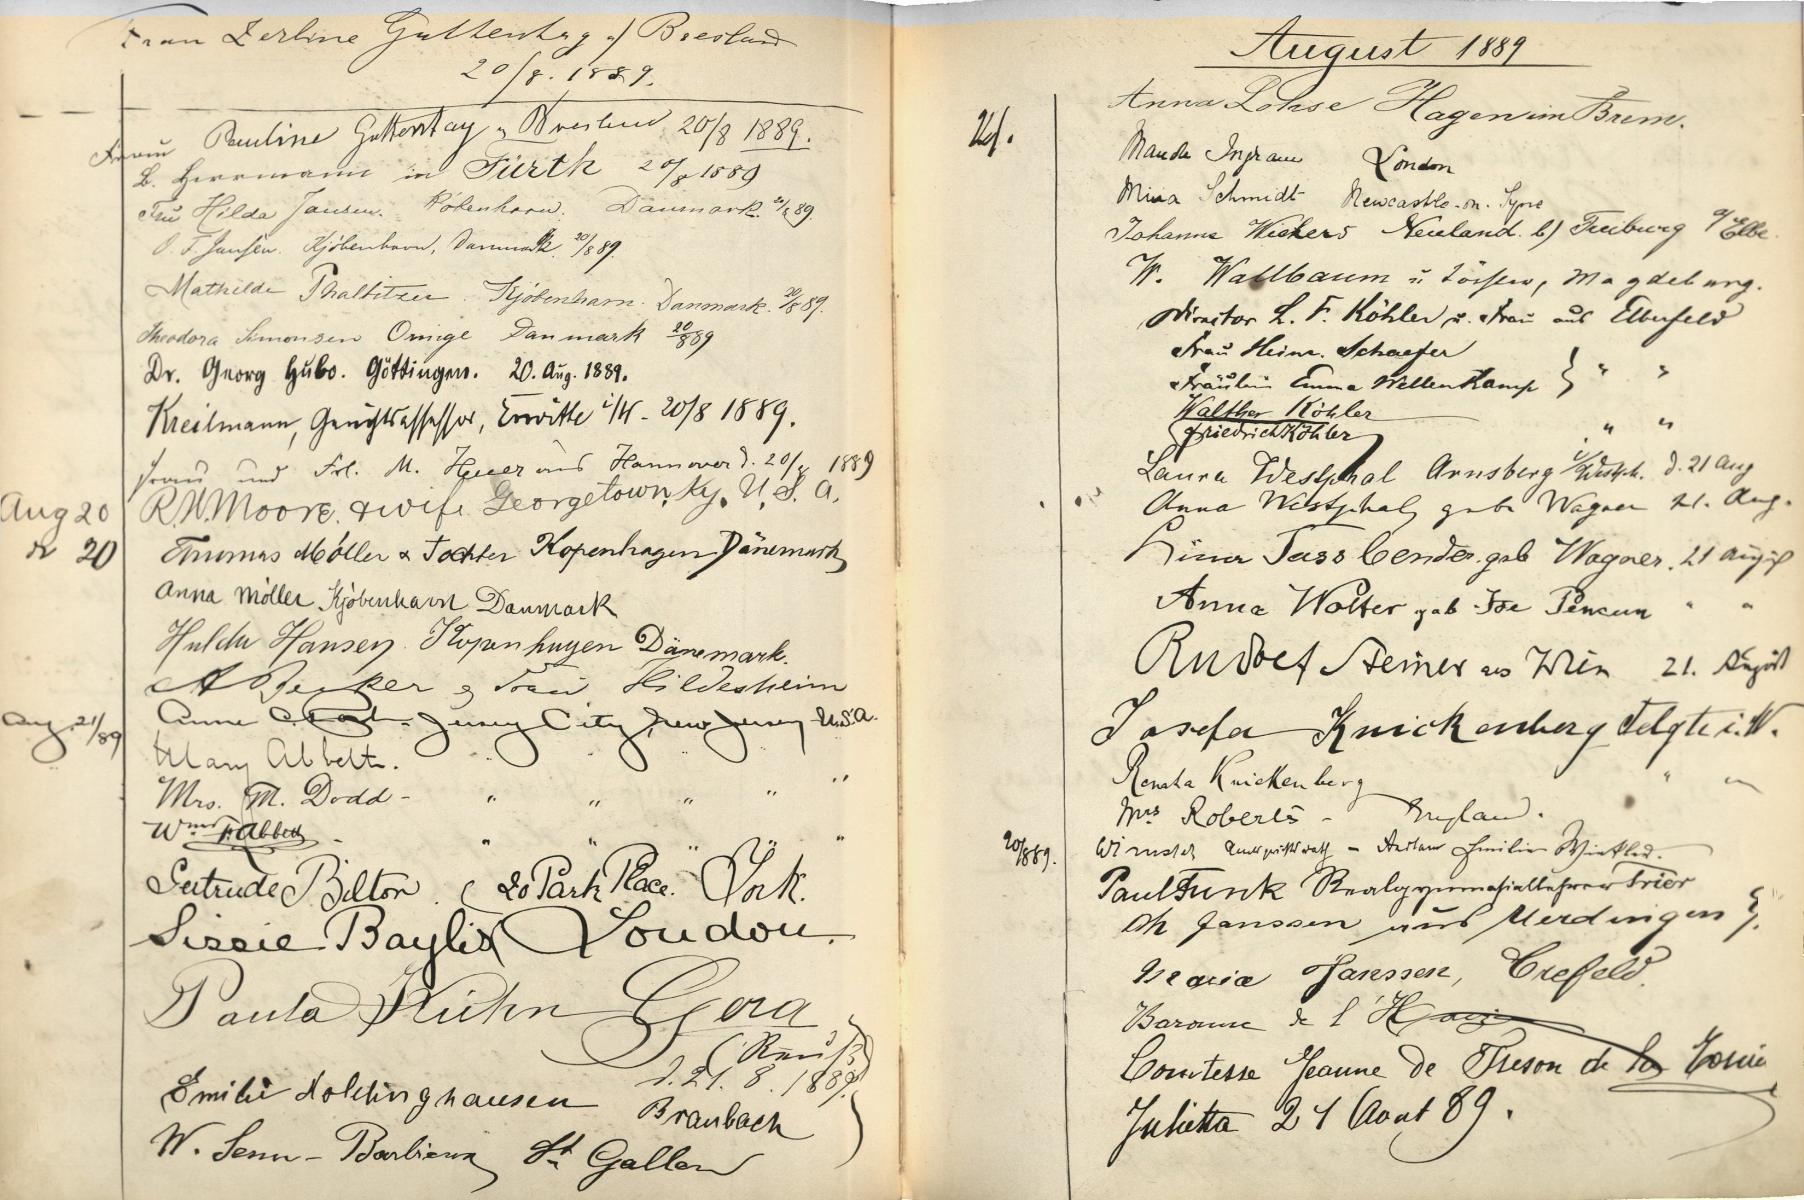 Frau Zerline Guttentag a/ Breslau
20/8. 1889.
Frau Pauline Guttentag a Breslau 20/8 1889.
L. Herrmann in Fürth 20/8 1889
Fru Hilda Jansen. Kobenhavn. Danmark. 20/8 89.
O. F. Jansen. Kjöbenhavn, Danmark. 20/8 89.
Mathilde Phalbitzer. Kjöbenhavn. Danmark. 20/8 89.
Theodora Simonsen Danmark 20/8 89
Dr. Georg Hubo. Göttingen. 20. Aug. 1889.
Kreilmann, Gerichtsassessor, Erwitte i/W - 20/8 1889.
Frau und Frl. M. Heuer aus Hannover d. 20/8 1889
Aug 20 R. W. Moore & wife Georgetown, Ky. U. S. A.
do 20 Thomas Möller & Tochter Kopenhagen Dänemark
Anna Möller Kjöbenhavn Danmark
Hulda Hansen Kopenhagen Dänemark.
A Becker & Frau Hildesheim
Aug. 21/89 Anne C. Jersey City, New Jersey U.S.A.
Mary Abbett. " " "
Mrs. M. Dodd - " " " " "
Wm Abbett - " " " " "
Gertrude Bilton. (20 Park Place. York.
Lissie Baylis London.
Paula Kühn Gera
(Reuß)
d. 21. 8. 1889.
Emilie Holdinghausen Braubach
W. Senn-Barbieux St Gallen
August 1889
Anna Lohse Hagen im Brem.
21. Maude Ingram London
Mina Schmidt Newcastle-on-Tyne
Johanna Wickers Neuland b/ Freiburg a/Elbe.
W. Wallbaum u Töchter, Magdeburg.
Director L. F. Köhler u. Frau aus Elberfeld
Frau Heinr. Schaefer
Fräulein Emma Wellenkamp } " "
Walther Köhler
Friedrich Köhler " "
Laura Westphal Arnsberg i/Westph. d. 21 Aug
Anna Westphal geb. Wagner 21. Aug.
Lina Fassbender geb Wagner. 21 August
Anna Wolter geb " "
Rudolf Steiner aus Wien 21. August
Josefa Knickenberg Telgte i. W.
Renata Knickenberg " "
Mrs Roberts - England.
20/8 89.
Paul Funk Realgymnasiallehrer Trier
Janssen aus Uerdingen
Maria Janssen, Crefeld.
Baronne de l'
Comtesse Jeanne de Treson de la
Julietta 21 Aout 89.